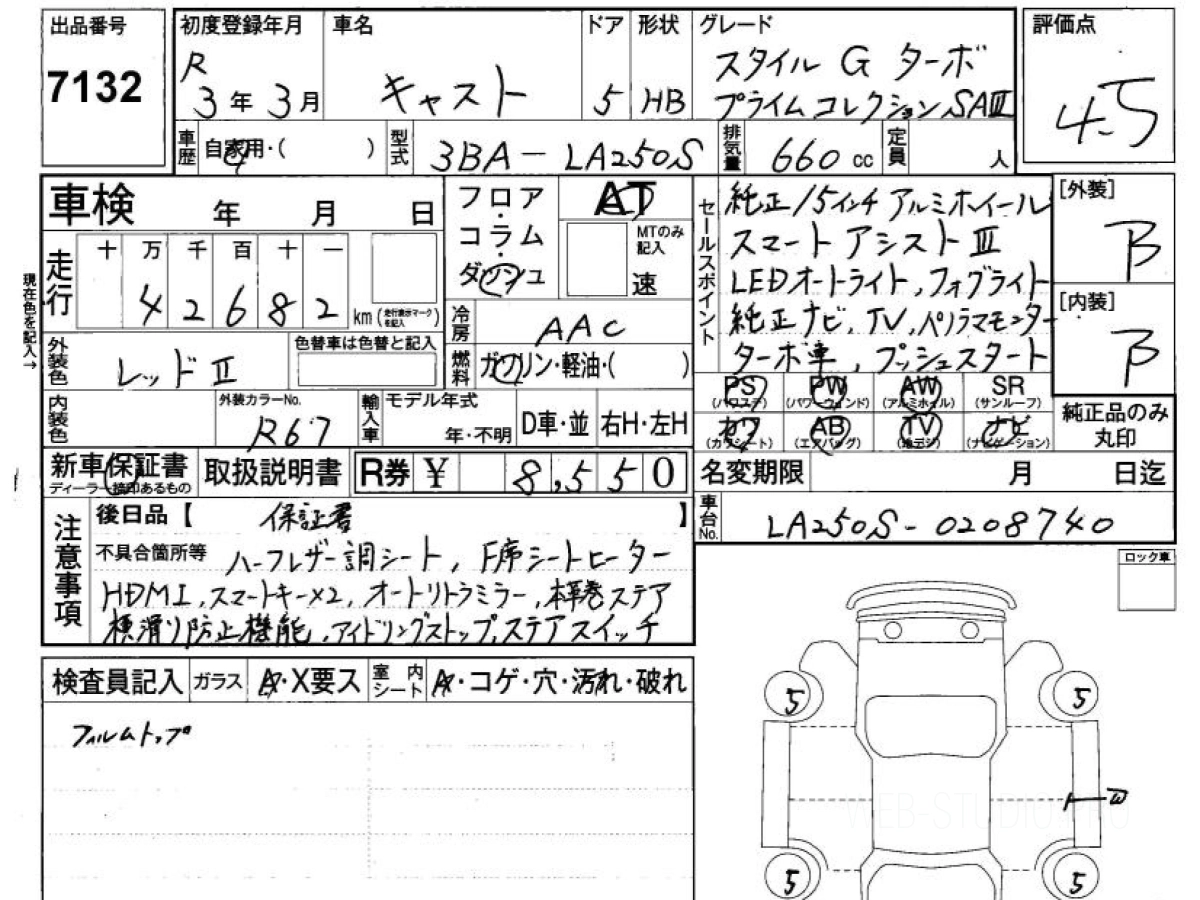 出品番号
7132
初度登録年月
R
3年3月
車名
キャスト
ドア
5
形状
HB
グレード
スタイル G ターボ
プライムコレクションSAⅢ
評価点
4.5
車歴
自家用・( )
型式
3BA-LA250S
排気量
660 cc
定員
人
車検 年 月 日
走行
十 万 千 百 十 一
4 2 6 8 2
km (走行表示マークを記入)
現在色を記入→
外装色
レッドⅡ
色替車は色替と記入
内装色
外装カラーNo.
R67
フロア
・
コラム
・
ダッシュ
AT
MTのみ記入
速
冷房
AAC
燃料
ガソリン・軽油・( )
輸入車
モデル年式
年・不明
D車・並
右H・左H
セールスポイント
純正15インチアルミホイール
スマートアシストⅢ
LEDオートライト,フォグライト
純正ナビ,TV,パノラマモニター
ターボ車,プッシュスタート
[外装]
B
[内装]
B
PS
(パワステ)
PW
(パワーウィンド)
AW
(アルミホイル)
SR
(サンルーフ)
カワ
(カワシート)
AB
(エアバッグ)
TV
(地デジ)
ナビ
(ナビゲーション)
純正品のみ
丸印
新車保証書
ディーラー捺印あるもの
取扱説明書
R券 ¥ 8,550
名変期限 月 日迄
車台No.
LA250S-0208740
注意事項
後日品【 保証書 】
不具合箇所等 ハーフレザー調シート,F席シートヒーター
HDMI,スマートキー×2,オートリトラミラー,本革巻ステア
横滑り防止機能,アイドリングストップ,ステアスイッチ
ロック車
検査員記入
ガラス
A・X要ス
室内シート
A・コゲ・穴・汚れ・破れ
フィルムトップ
5
5
A
W
5
5
WEB-STUDIO.PRO